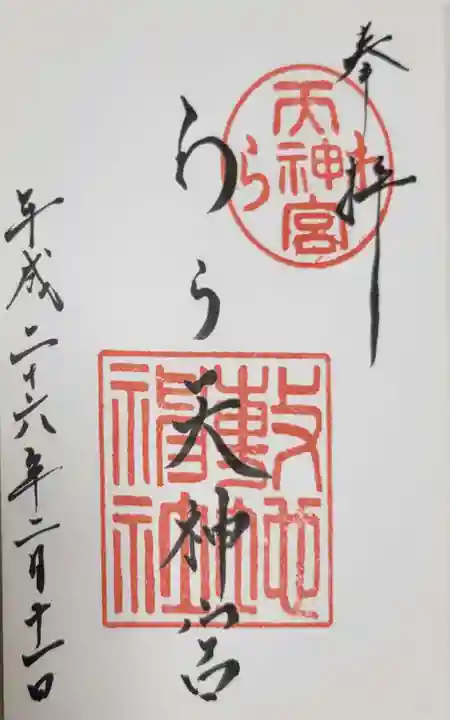 奉拝
わら天神宮
わら天神宮
敷地
神社
平成二十六年二月十一日